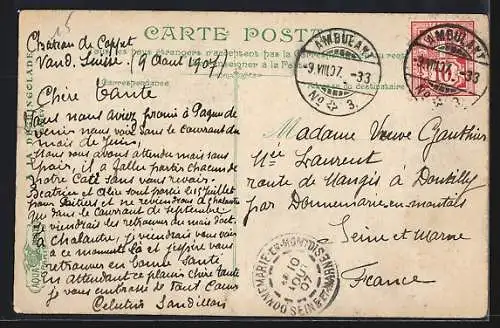 CARTE POSTALE
Tous les pays étrangers n'acceptent pas la Correspondance
Correspondance
Château de Coppet
Vaud. Suisse. (9 Août 1907)
Chère Tante
Vous nous aviez promis à Pâques de
venir nous voir dans le courraut du
mois de Juin.
Nous vous avons attendu mais sans
espoir, il a fallu partir chacun de
notre coté sans vous revoir.
Béatrix et Alice sont parties les Juillet
pour Poitiers et ne reviendront à chalautre
que dans le courraut de septembre
je viendrais les retrouver du mois d'août.
à chalautre, je viendrais vous voir
à ce moment là et j'espère vous
retrouver en bonne santé
En attendant ce plaisir chère tante
je vous embrasse de tout cœur
AMBULANT
9.VIII.07. -33
No 3.
AMBULANT
9.VIII.07. -33
No 3.
Madame Veuve Gauthier
Née Laurent
route de Nangis à Dontilly
par Donnemarie-en-montois
Seine et Marne
France
DONNEMARIE-EN-MONTOIS
SEINE ET MARNE
10
AOUT
07